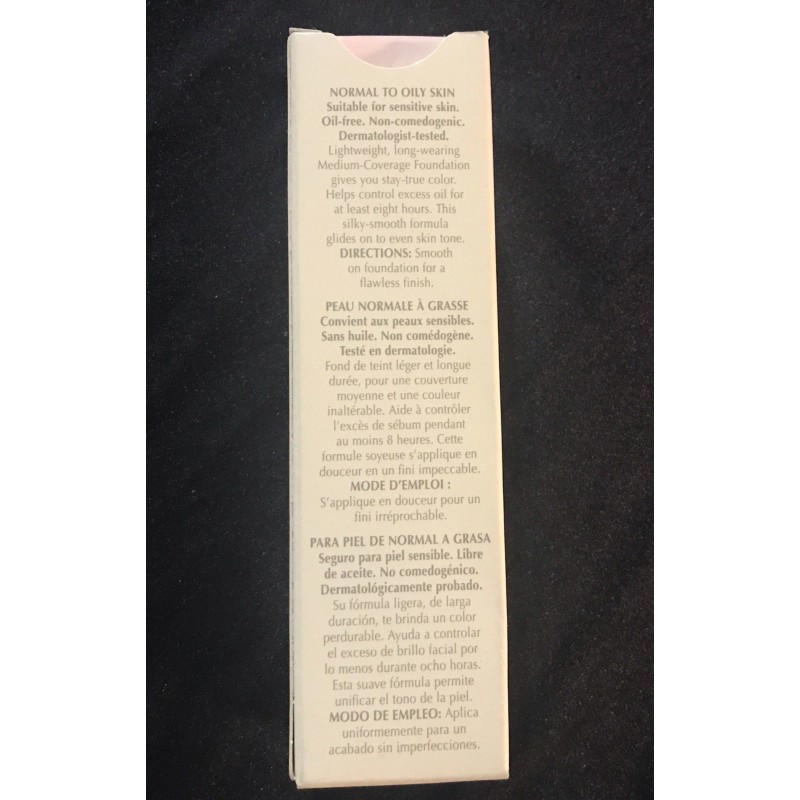 NORMAL TO OILY SKIN
Suitable for sensitive skin.
Oil-free. Non-comedogenic.
Dermatologist-tested.
Lightweight, long-wearing
Medium-Coverage Foundation
gives you stay-true color.
Helps control excess oil for
at least eight hours. This
silky-smooth formula
glides on to even skin tone.
DIRECTIONS: Smooth
on foundation for a
flawless finish.
PEAU NORMALE À GRASSE
Convient aux peaux sensibles.
Sans huile. Non comédogène.
Testé en dermatologie.
Fond de teint léger et longue
durée, pour une couverture
moyenne et une couleur
inaltérable. Aide à contrôler
l'excès de sébum pendant
au moins 8 heures. Cette
formule soyeuse s'applique en
douceur en un fini impeccable.
MODE D'EMPLOI :
S'applique en douceur pour un
fini irréprochable.
PARA PIEL DE NORMAL A GRASA
Seguro para piel sensible. Libre
de aceite. No comedogénico.
Dermatológicamente probado.
Su fórmula ligera, de larga
duración, te brinda un color
perdurable. Ayuda a controlar
el exceso de brillo facial por
lo menos durante ocho horas.
Esta suave fórmula permite
unificar el tono de la piel.
MODO DE EMPLEO: Aplica
uniformemente para un
acabado sin imperfecciones.